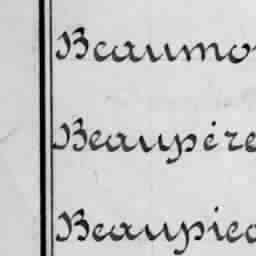 Beaumo
Beaupére
Beaupied